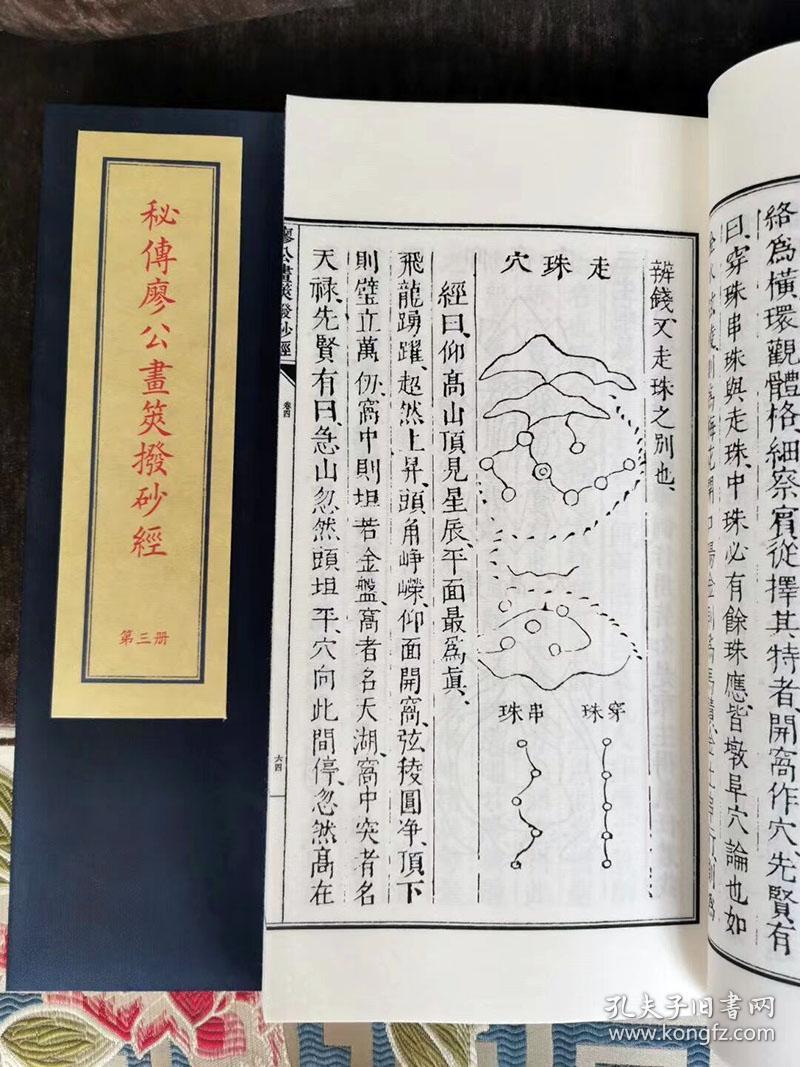 秘傳廖公畫筴撥砂經
第三册
絡為橫環觀體格細察賓從擇其特者開窩作穴先賢有
曰穿珠串珠與走珠中珠必有餘珠應皆墩阜穴論也如
辨錢又走珠之別也
走珠穴
穿珠
串珠
經曰仰高山頂見星辰平面最為真
飛龍踴躍超然上昇頭角崢嶸仰面開窩弦稜圓净頂下
則璧立萬仞窩中則坦若金盤窩者名天湖窩中突者名
天禄先賢有曰急山忽然頭坦平穴向此間停忽然高在
廖公畫筴發砂經
卷四
六四
孔夫子旧書网
www.kongfz.com